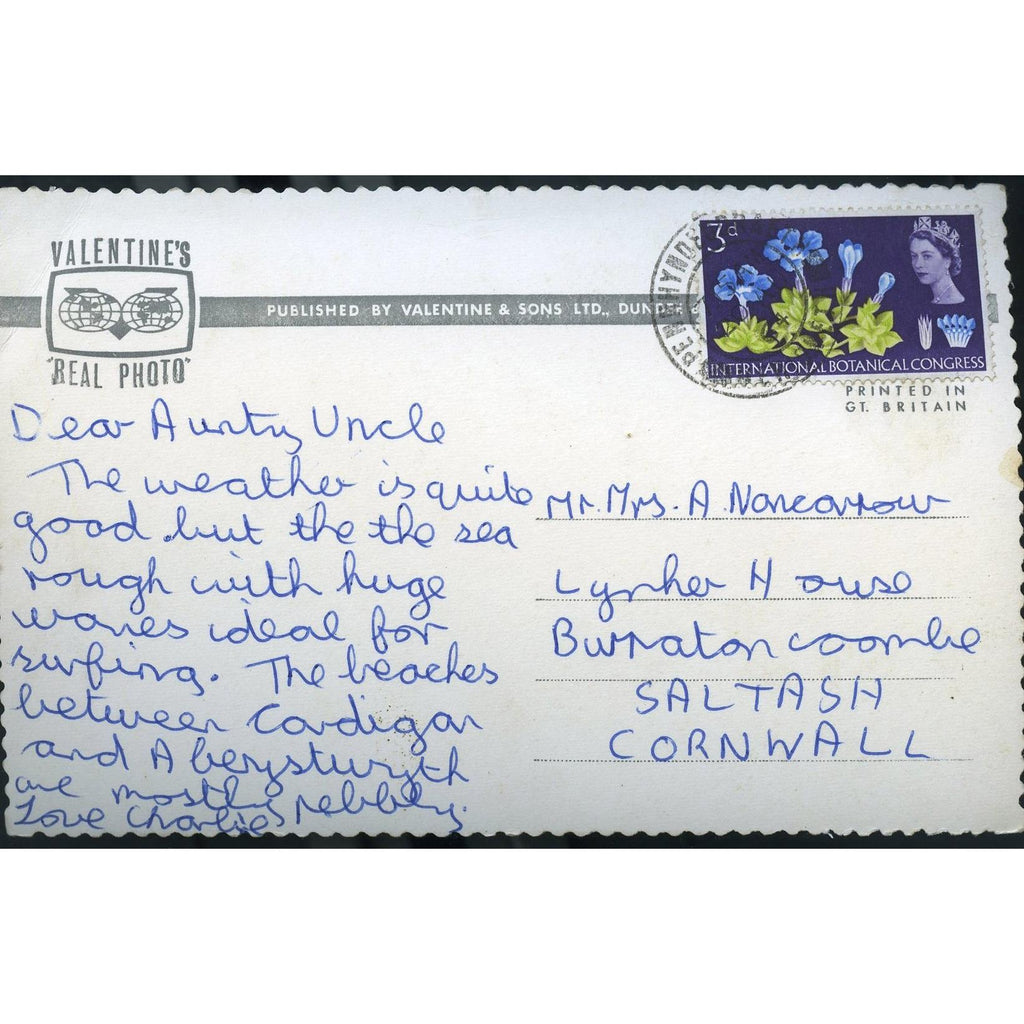 VALENTINE'S
"REAL PHOTO"
PUBLISHED BY VALENTINE & SONS LTD., DUNDEE &
3d
INTERNATIONAL BOTANICAL CONGRESS
PENRHYNDEUDRA
PRINTED IN
GT. BRITAIN
Dear Aunty Uncle
The weather is quite
good but the the sea
rough with huge
waves ideal for
surfing. The beaches
between Cardigan
and Aberystwyth
are mostly pebbly.
Love Charlie
Mr. Mrs. A.
Lynher House
Burraton coombe
SALTASH
CORNWALL